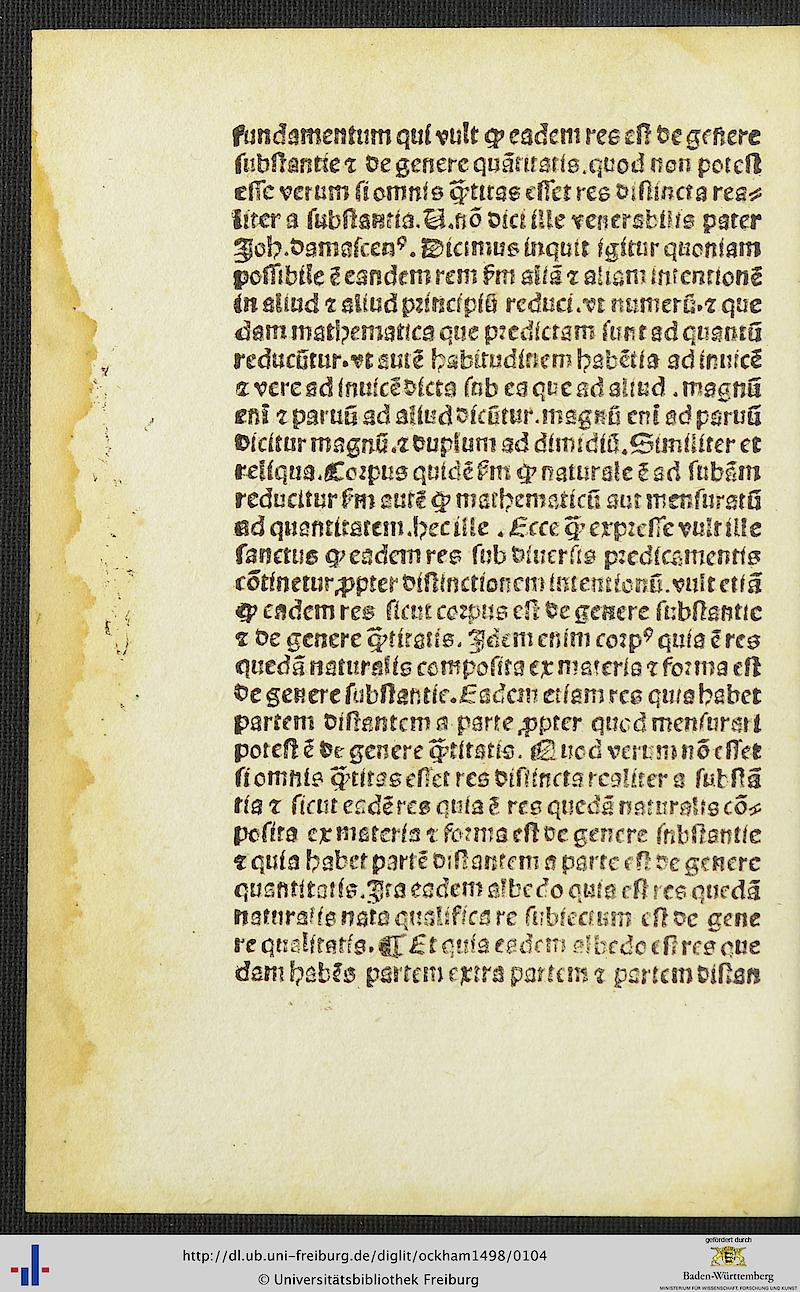 fundamentum qui vult ꝙ eadem res est de genere
substantie ⁊ de genere quãtitatis.quod non potest
esse verum si omnis q̃titas esset res distincta rea⸗
liter a substantia.U.nõ dici ille venerabilis pater
Joh.damascenꝰ. Dicimus inquit igitur quoniam
possibile ẽ eandem rem ẜm aliã ⁊ aliam intentionẽ
in aliud ⁊ aliud principiũ reduci.vt numerũ.⁊ que
dam mathematica que predictam sunt ad quantũ
reducũtur.vt autẽ habitudinem habẽtia ad inuicẽ
⁊ vere ad inuicẽ dicta sub ea que ad aliud . magnũ
eni̅ ⁊ paruũ ad aliud dicũtur.magnũ eni̅ ad paruũ
dicitur magnũ.⁊ duplum ad dimidiũ.Similiter et
reliqua.Corpus quidẽ ẜm ꝙ naturale ẽ ad subãm
reducitur ẜm autẽ ꝙ mathematicũ aut mensuratũ
ad quantitatem.hec ille . Ecce q̃ expresse vult ille
sanctus ꝙ eadem res sub diuersis predicamentis
cõtinetur ꝓpter distinctionem intentionũ.vult etiã
ꝙ eadem res sicut corpus est de genere substantie
⁊ de genere q̃titatis. Jdem enim corpꝰ quia ẽ res
quedã naturalis composita ex materia ⁊ forma est
de genere substantie.Eadem etiam res quia habet
partem distantem a parte ꝓpter quod mensurari
potest ẽ de genere q̃titatis. Quod verum nõ esset
si omnis q̃titas esset res distincta realiter a substã
tia ⁊ sicut eadẽ res quia ẽ res quedã naturalis cõ⸗
posita ex materia ⁊ forma est de genere substantie
⁊ quia habet partẽ distantem a parte est de genere
quantitatis.Jta eadem albedo quia est res quedã
naturalis nata qualificare subiectum est de gene
re qualitatis.¶ Et quia eadem albedo est res que
dam habẽs partem extra partem ⁊ partem distan
http://dl.ub.uni-freiburg.de/diglit/ockham1498/0104
© Universitätsbibliothek Freiburg
gefördert durch
Baden-Württemberg
MINISTERIUM FÜR WISSENSCHAFT, FORSCHUNG UND KUNST